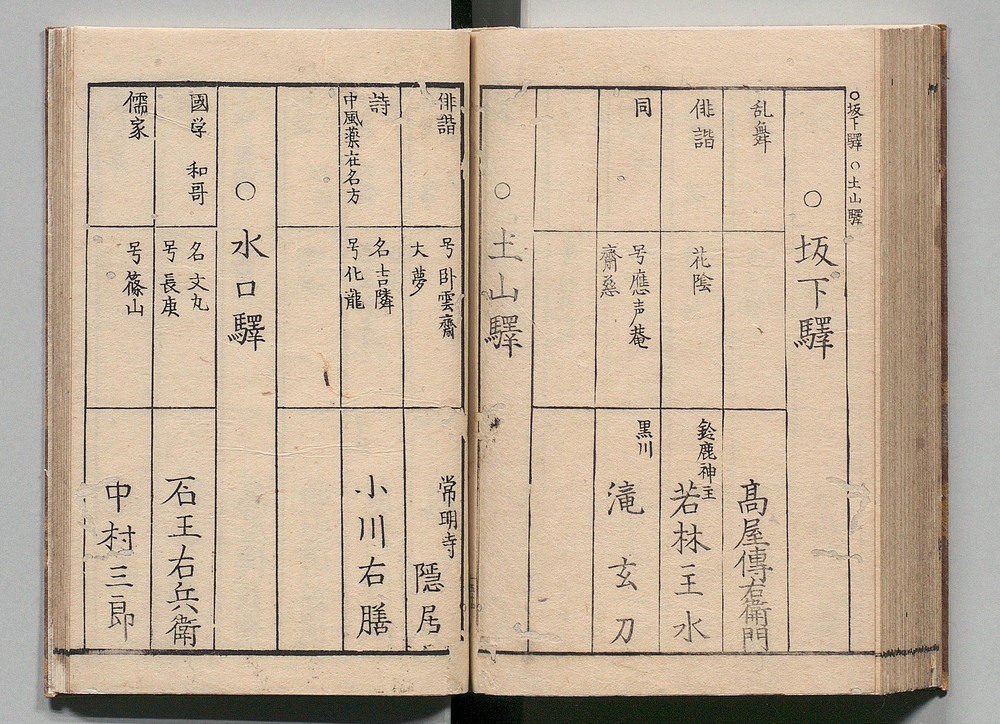 ○坂下驛 ○土山驛
○坂下驛
乱舞
髙屋傳右衞門
俳諧
花陰
鈴鹿神主
若林王水
同
号應声菴
齋
黒川
滝玄刀
○土山驛
俳諧
号卧雲齋
大夢
常明寺
隠居
詩
中風薬在名方
名吉隣
号化龍
小川右膳
○水口驛
國学 和哥
名文丸
号長庚
石王右兵衛
儒家
号篠山
中村三郎